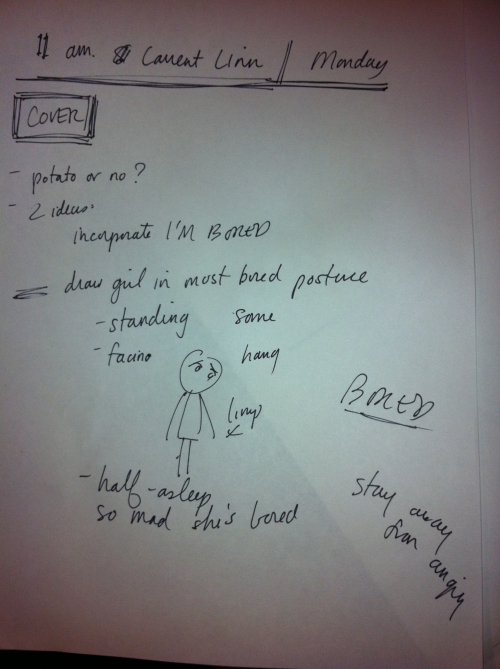 11 am. Laurent Linn | Monday
COVER
- potato or no?
- 2 ideas.
incorporate I'M BORED
draw girl in most bored posture
- standing some
- facing hang
limp
BORED
- half-asleep
so mad she's bored
stay away
from angry